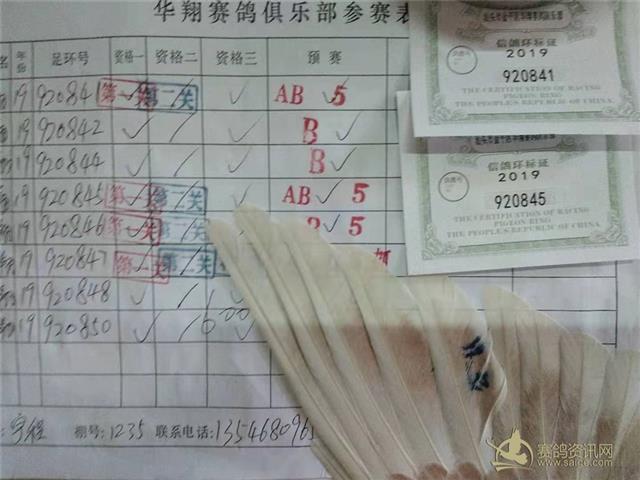 华翔赛鸽俱乐部参赛表
名 年份 足环号 资格一 资格二 资格三 预赛
19 920841 第一关 第二关 ✓ AB ✓ 5
19 920842 ✓ / ✓ B ✓
19 920844 ✓ / ✓ B ✓
19 920845 第一关 第二关 ✓ AB ✓ 5
19 920846 第一关 第二关 ✓ ✓ 5
19 920847 第一关 第二关
19 920848 ✓ /
19 920850 ✓ /
棚号:1235 联系电话:1354680965
信鸽环标证
2019
920841
THE CERTIFICATION OF RACING
PIGEON RING
THE PEOPLE'S REPUBLIC OF CHINA.
信鸽环标证
2019
920845
THE CERTIFICATION OF RACING
PIGEON RING
THE PEOPLE'S REPUBLIC OF CHINA.
赛鸽资讯网
www.saige.com